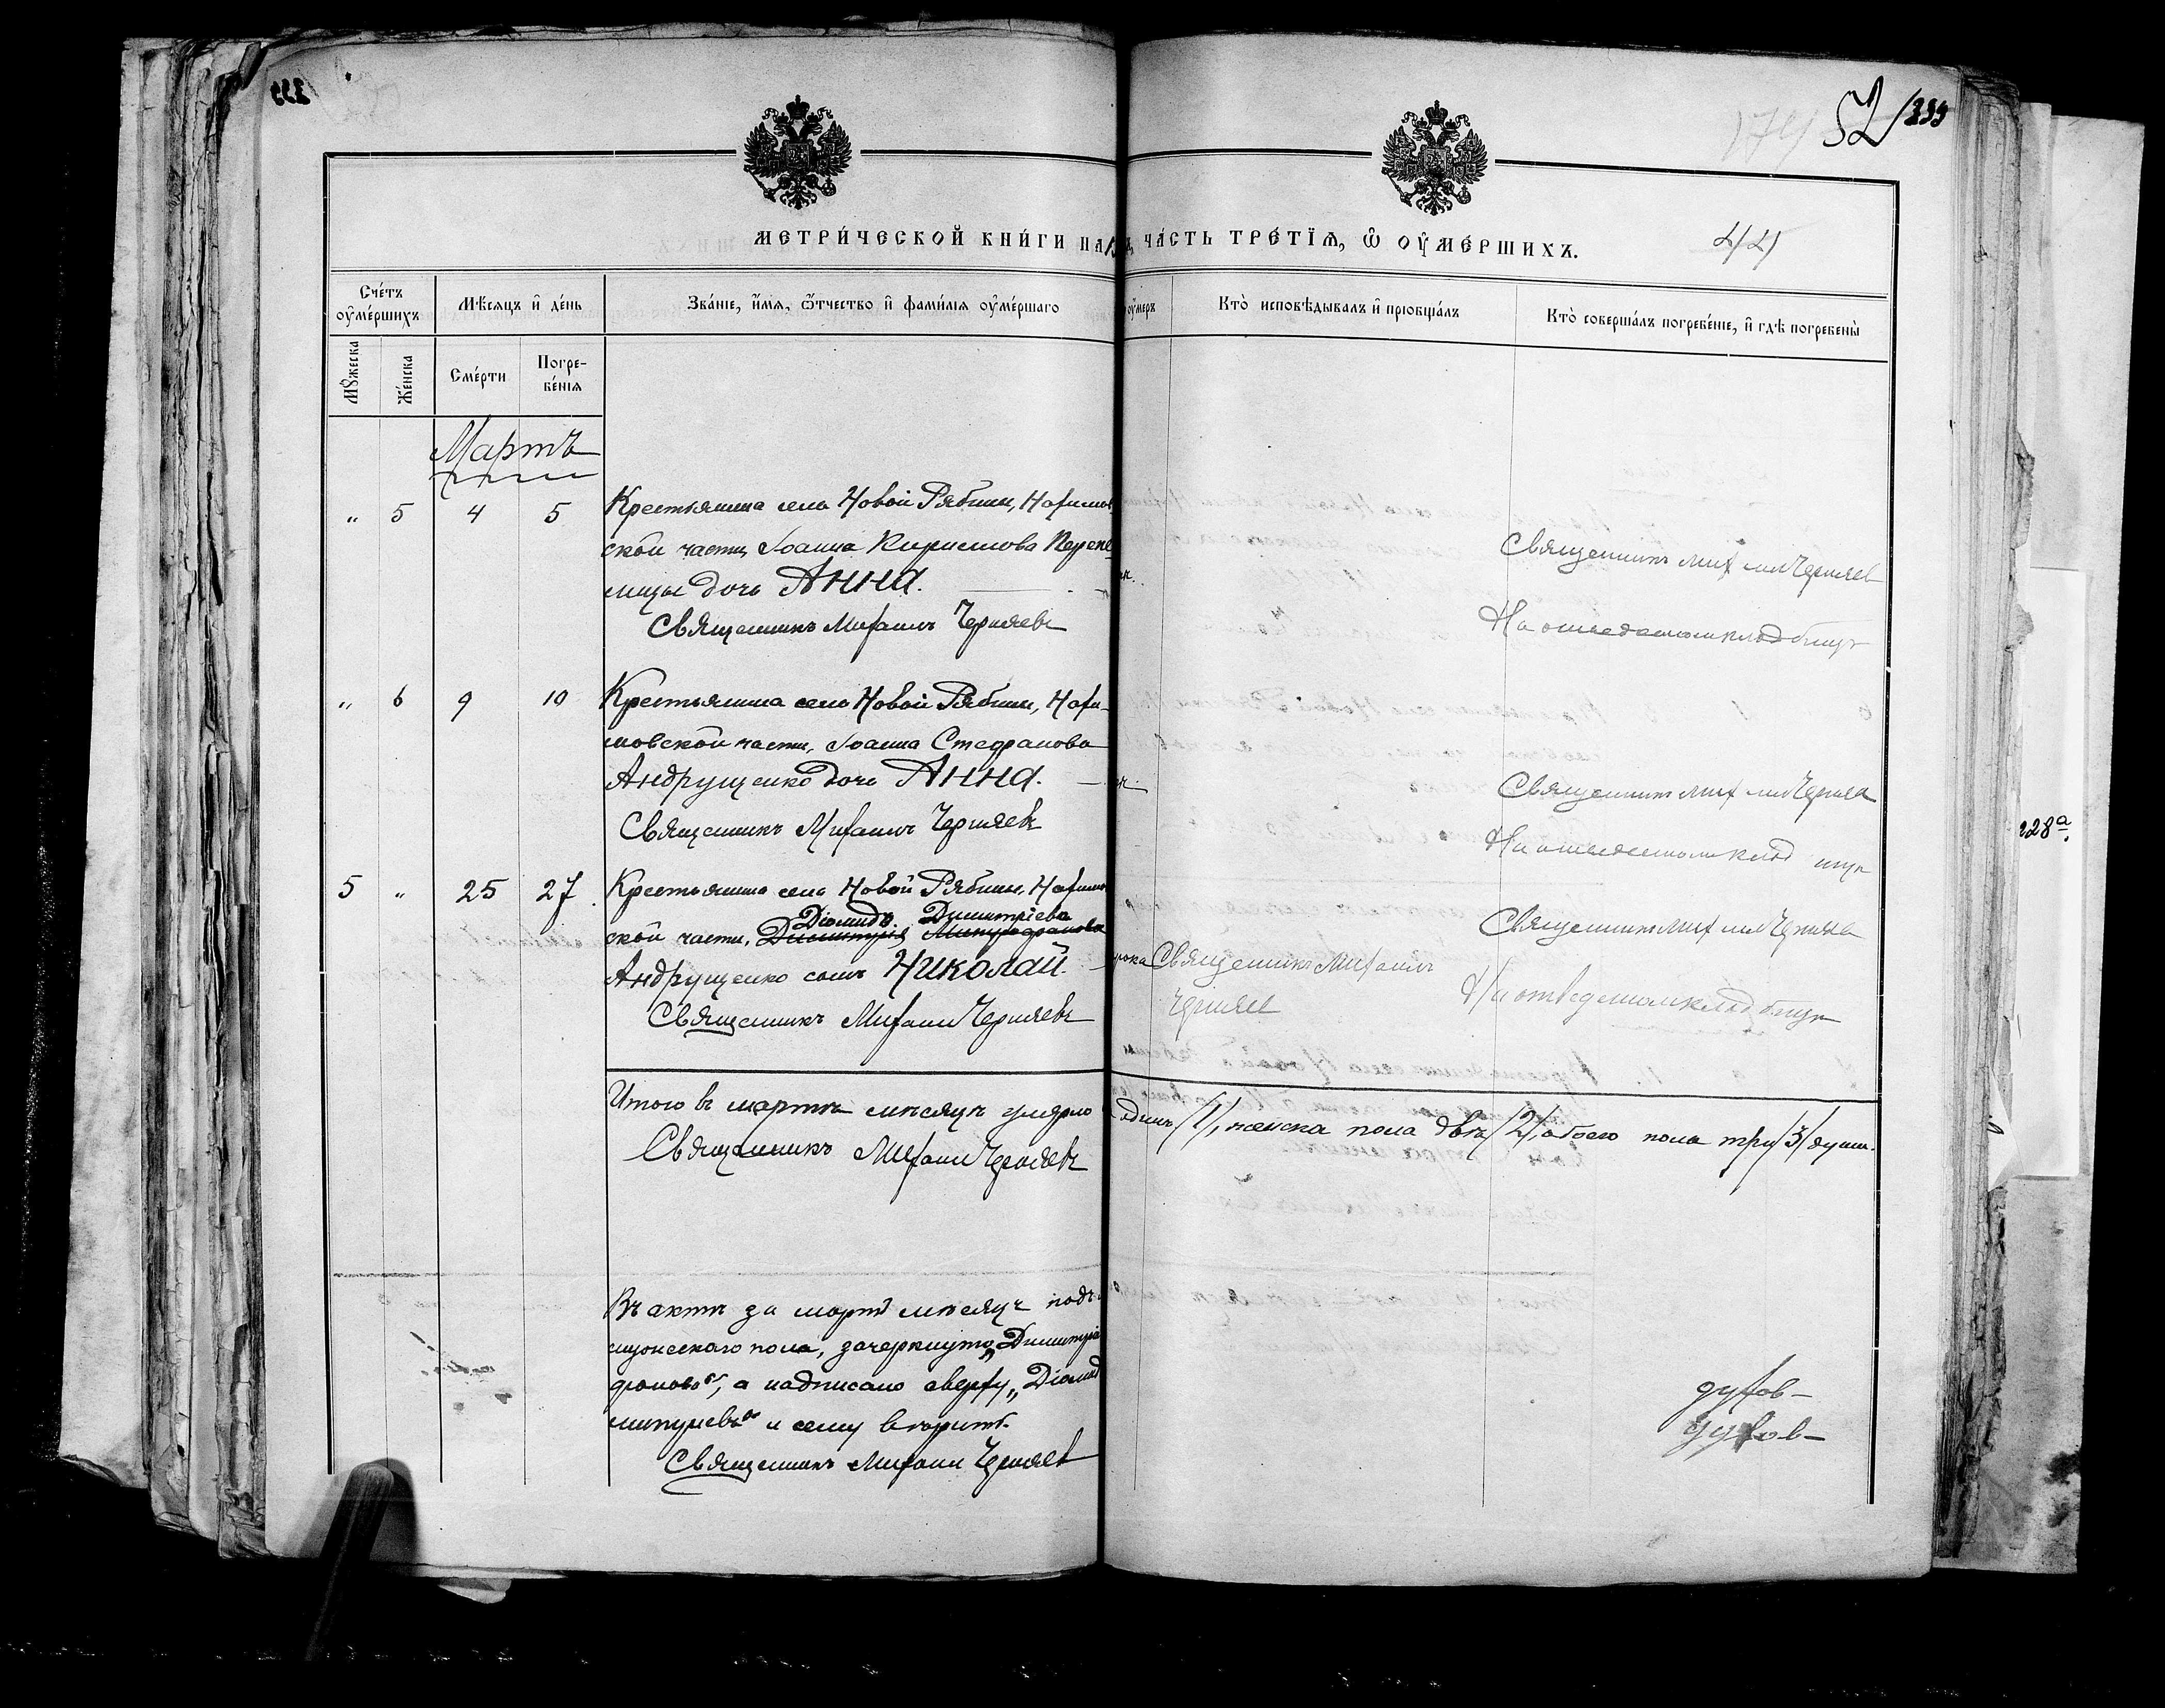 52 / 239
174
МЕТРИ́ЧЕСКОЙ КНИ́ГИ НА
ЧА́СТЬ ТРЕ́ТЇѦ, Ѽ ОУ҆МЕ́РШИХЪ.
Сче́тъ оу҆ме́ршихъ
Мѣ́сяцъ и҆ де́нь
Зва́нїе, и҆́мѧ, ѻ҆́тчество и҆ фами́лїѧ оу҆ме́ршаго
оу҆́меръ
Кто̀ исповѣ́дывалъ и҆ прїобща́лъ
Кто̀ соверша́лъ погребе́нїе, и҆ гдѣ̀ погребены̀
Мꙋ́жеска
Же́нска
Сме́рти
Погре-
бе́нїѧ
Мартъ
" 5 4 5 Крестьянина села Новой Рябины,
ской части, Іоанна Кириллова
дочь Анна.
Священникъ Михаилъ Черняевъ
Священникъ Михаилъ Черняев
На отведенном кладбищѣ
" 6 9 10 Крестьянина села Новой Рябины, Нахи-
мовской части, Іоанна Стефанова
Андрущенко дочь Анна.
Священникъ Михаилъ Черняевъ
Священник Михаил Черняев
На отведенном клад ищѣ
5 " 25 27 Крестьянина села Новой Рябины,
Діомида Димитріева
ской части, Димитрія Митрофанова
Андрущенко сынъ Николай.
Священникъ Михаилъ Черняевъ
Священникъ Михаилъ
Черняев
Священник Михаил Черняев
На отведенном кладбищѣ
Итого въ мартѣ мѣсяцѣ умерло
одинъ /1/, женска пола двѣ /2/, обоего пола три /3/ душ.
Священникъ Михаилъ Черняевъ
Въ актѣ за мартъ мѣсяцъ подъ
мужескаго пола, зачеркнуто „Димитрія
фанова“, а надписано сверху „Діомид
митріева“ и сему вѣрить.
Священникъ Михаил Черняев
духов-
духов-
228а